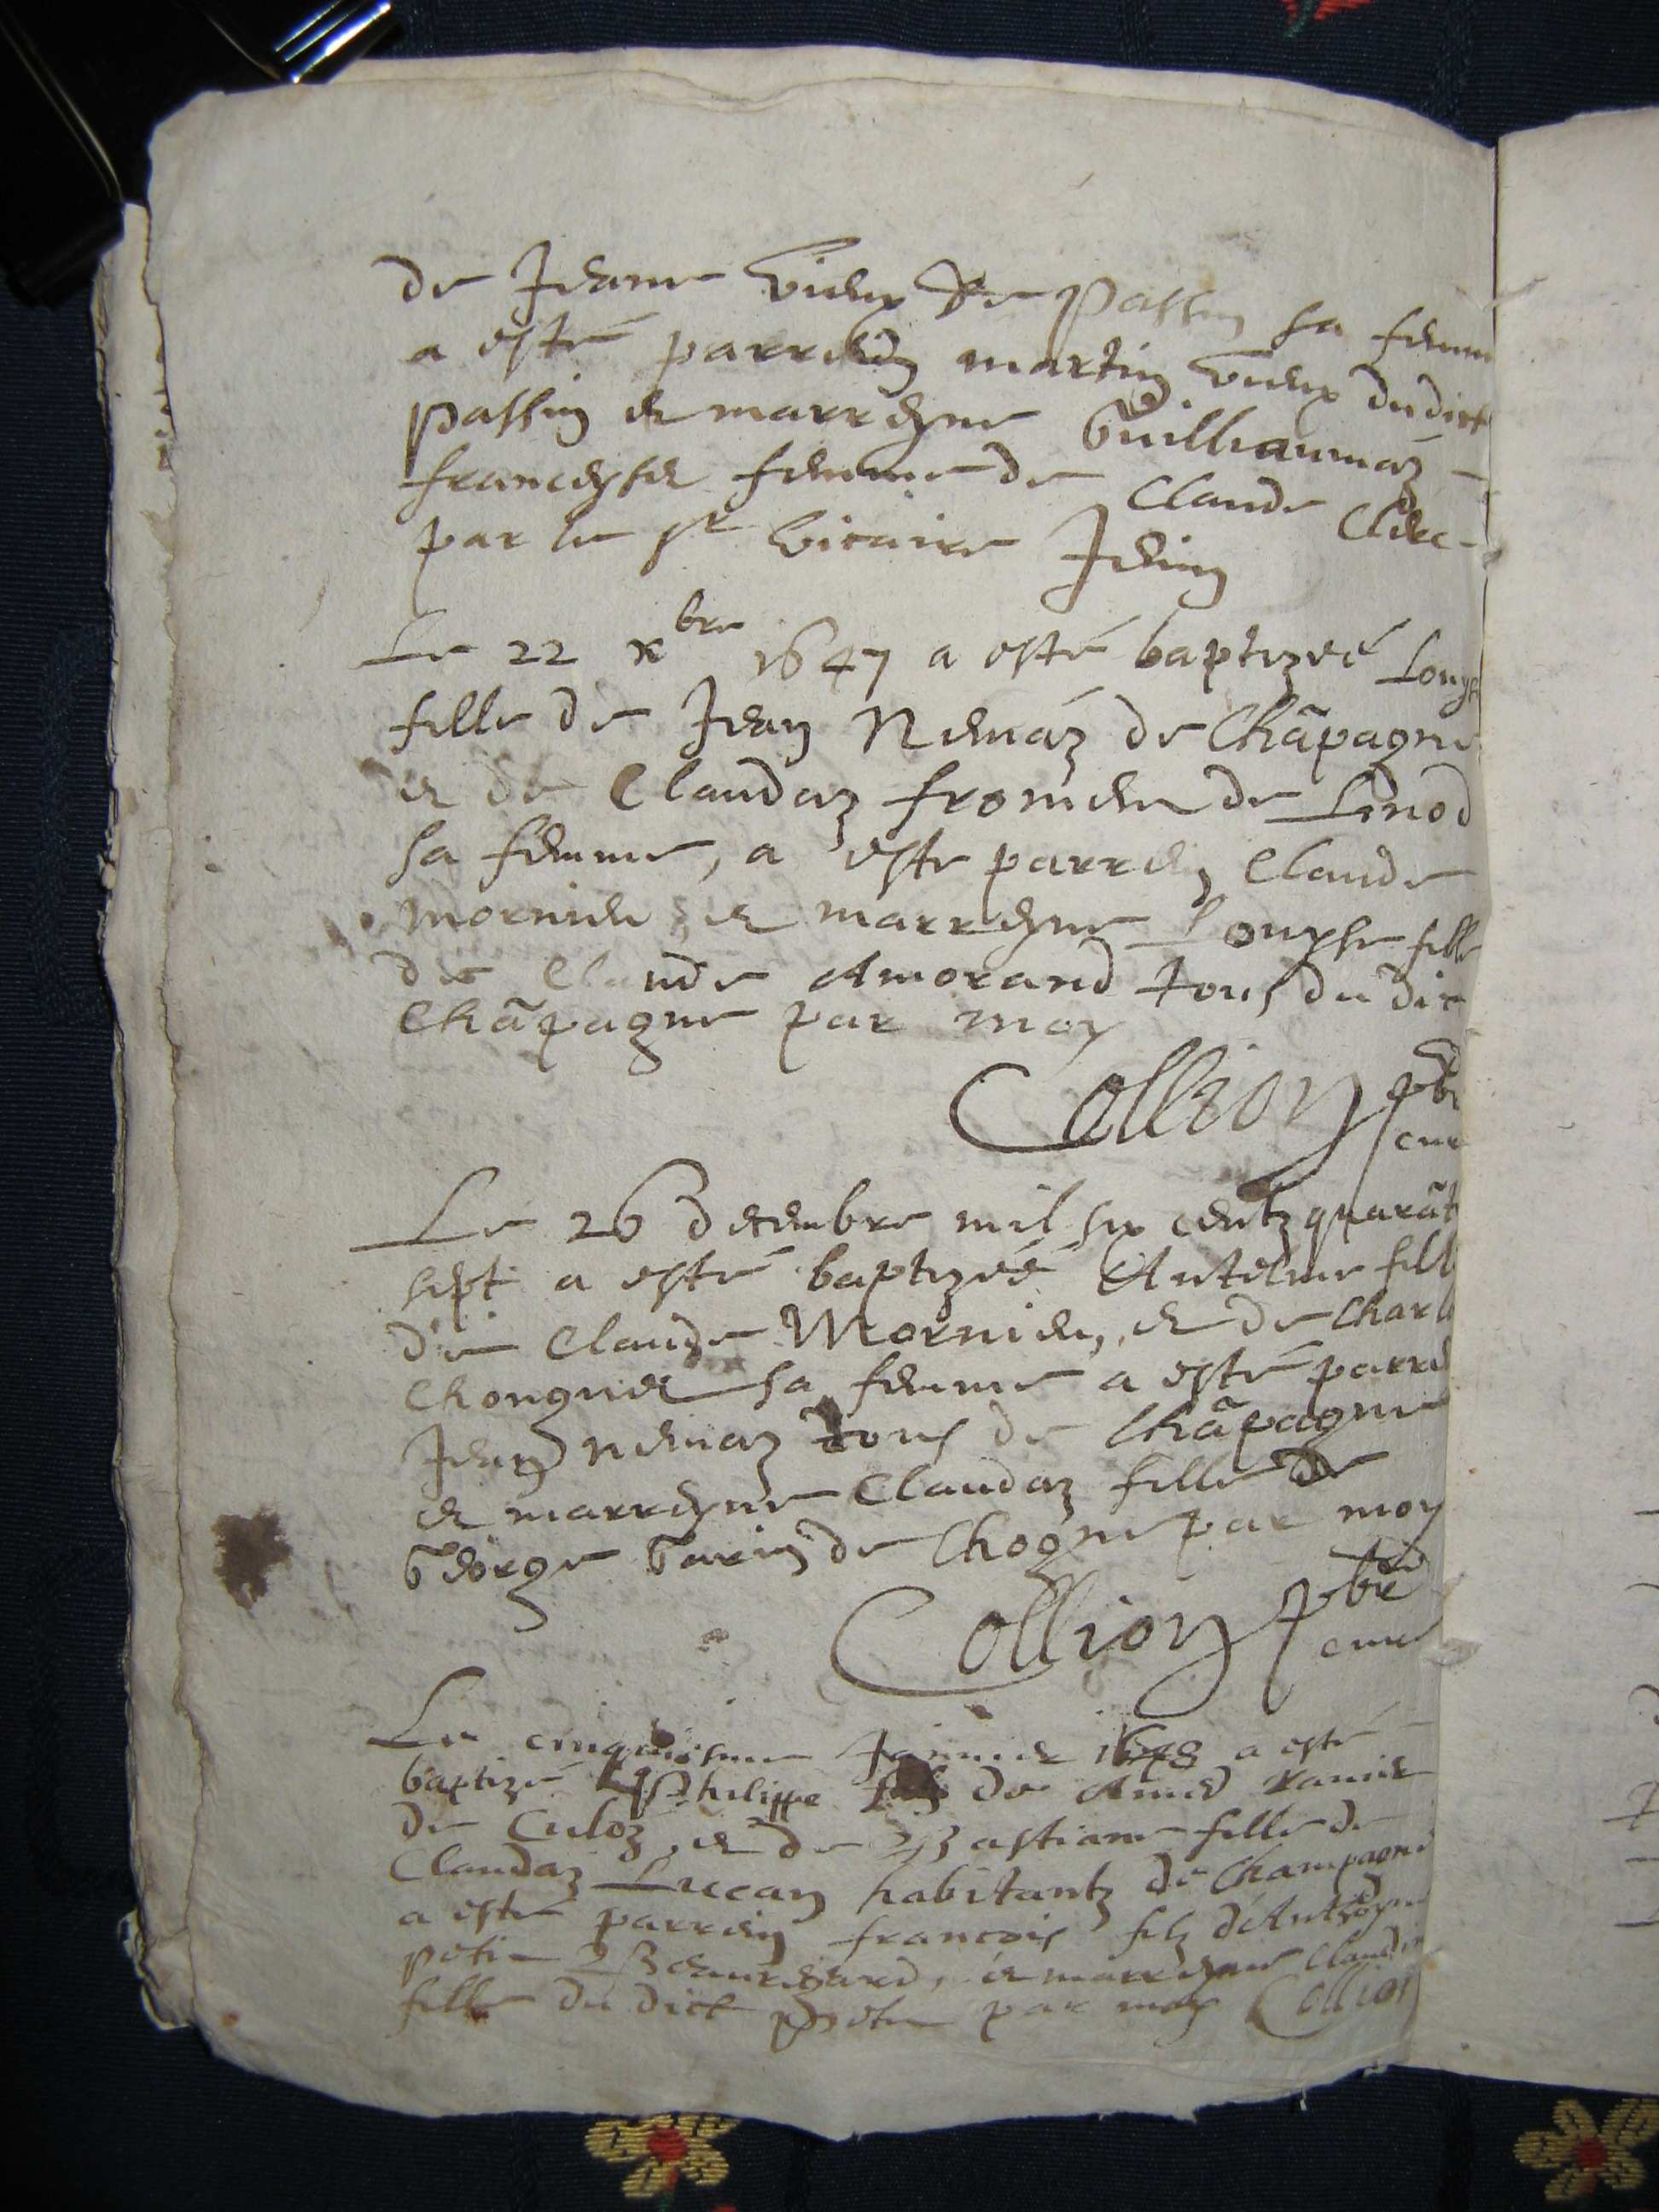 de Jeanne Vieux de Passin sa femme
a esté parrein martin Vieux dudict
Passin et marreyne Guilliaumaz
franceyset femme de Claude Clerc
par le sr vicaire Jenin
Le 22 xbre 1647 a esté baptizéé Louyse
fille de Jean Nemaz de Chãpagne
et de Claudaz fromen de Linod
sa femme, a este parrein Claude
mornieu, et marreyne Louyse fille
de Claude Amorand tous du dict
Chãpagne par moy
Collion pbre
curé
Le 26 decembre mil six centz quarãte
sept a esté baptizéé Antelme fille
de Claude Mornieu, et de Charl
Chongnet sa femme a esté parrein
Jean nemaz tous de Chãpagne
et marreyne Claudaz fille de
George Garin de Chogne par moy
Collion pbre
curé
Le cinquiesme Janvier 1648 a esté
baptizé Philippe filz de Amed
de Culoz, et de Bastiane fille de
Claudaz Luccan habitantz de Champagne
a esté parrein francois filz d'Anthoyne
Petit Beauregard, et marreyne Claudin
fille du dict Petit par moy Collion